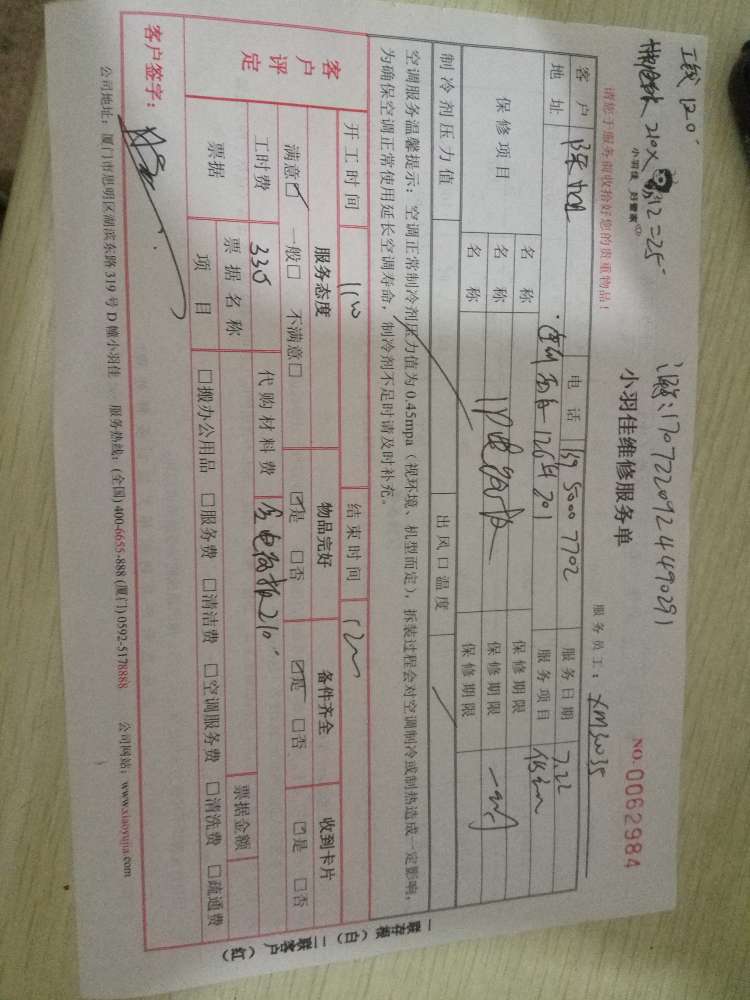 工钱 120
210×
12=25
小羽佳 好管家
请您于服务前收拾好您的贵重物品！
1707220924490291
小羽佳维修服务单
NO. 0062984
服务员工：XM3035
客户 电话 159 5000 7702 服务日期 7.22
地址 服务项目
保修项目 名称 保修期限
名称 保修期限
名称 保修期限
制冷剂压力值 出风口温度
空调服务温馨提示：空调正常制冷剂压力值为0.45mpa（视环境、机型而定），拆装过程会对空调制冷或制热造成一定影响，
为确保空调正常使用延长空调寿命，制冷剂不足时请及时补充。
开工时间 结束时间
客户评定
服务态度 物品完好 备件齐全 收到卡片
满意☑ 一般□ 不满意□ ☑是 □否 ☑是 □否 ☑是 □否
工时费 330 代购材料费 电 板210
票据 票据名称 票据金额
项目 □搬办公用品 □服务费 □清洁费 □空调服务费 □清洗费 □疏通费
客户签字：
公司地址：厦门市思明区湖滨东路 319 号 D 幢小羽佳 服务热线：(全国) 400-6655-888 (厦门) 0592-5178888 公司网站：www.xiaoyujia.com
一联存根（白）二联客户（红）